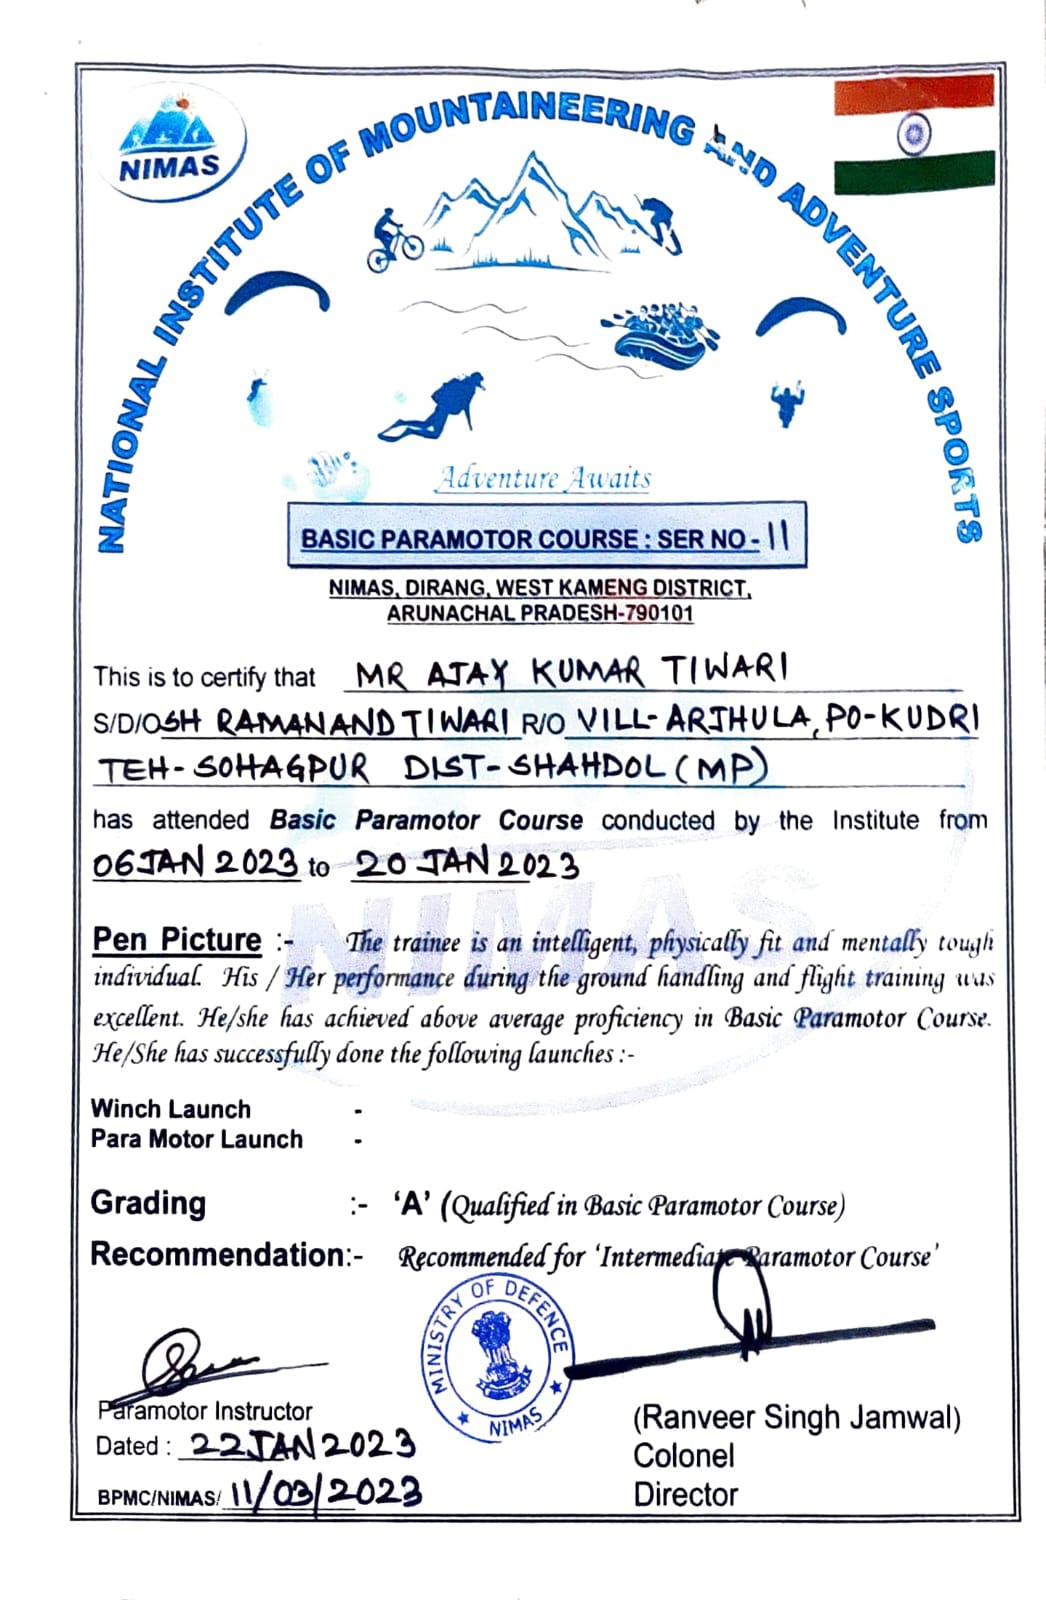 NIMAS
NATIONAL INSTITUTE OF MOUNTAINEERING AND ADVENTURE SPORTS
Adventure Awaits
BASIC PARAMOTOR COURSE : SER NO - 11
NIMAS, DIRANG, WEST KAMENG DISTRICT,
ARUNACHAL PRADESH-790101
This is to certify that MR AJAY KUMAR TIWARI
S/D/O SH RAMANAND TIWARI R/O VILL- ARJHULA, PO-KUDRI
TEH- SOHAGPUR DIST- SHAHDOL (MP)
has attended Basic Paramotor Course conducted by the Institute from
06 JAN 2023 to 20 JAN 2023
NIMAS
Pen Picture :- The trainee is an intelligent, physically fit and mentally tough
individual. His / Her performance during the ground handling and flight training was
excellent. He/she has achieved above average proficiency in Basic Paramotor Course.
He/She has successfully done the following launches :-
Winch Launch -
Para Motor Launch -
Grading :- ‘A’ (Qualified in Basic Paramotor Course)
Recommendation:- Recommended for ‘Intermediate Paramotor Course’
MINISTRY OF DEFENCE
NIMAS
Paramotor Instructor
Dated : 22 JAN 2023
BPMC/NIMAS/ 11/03/2023
(Ranveer Singh Jamwal)
Colonel
Director